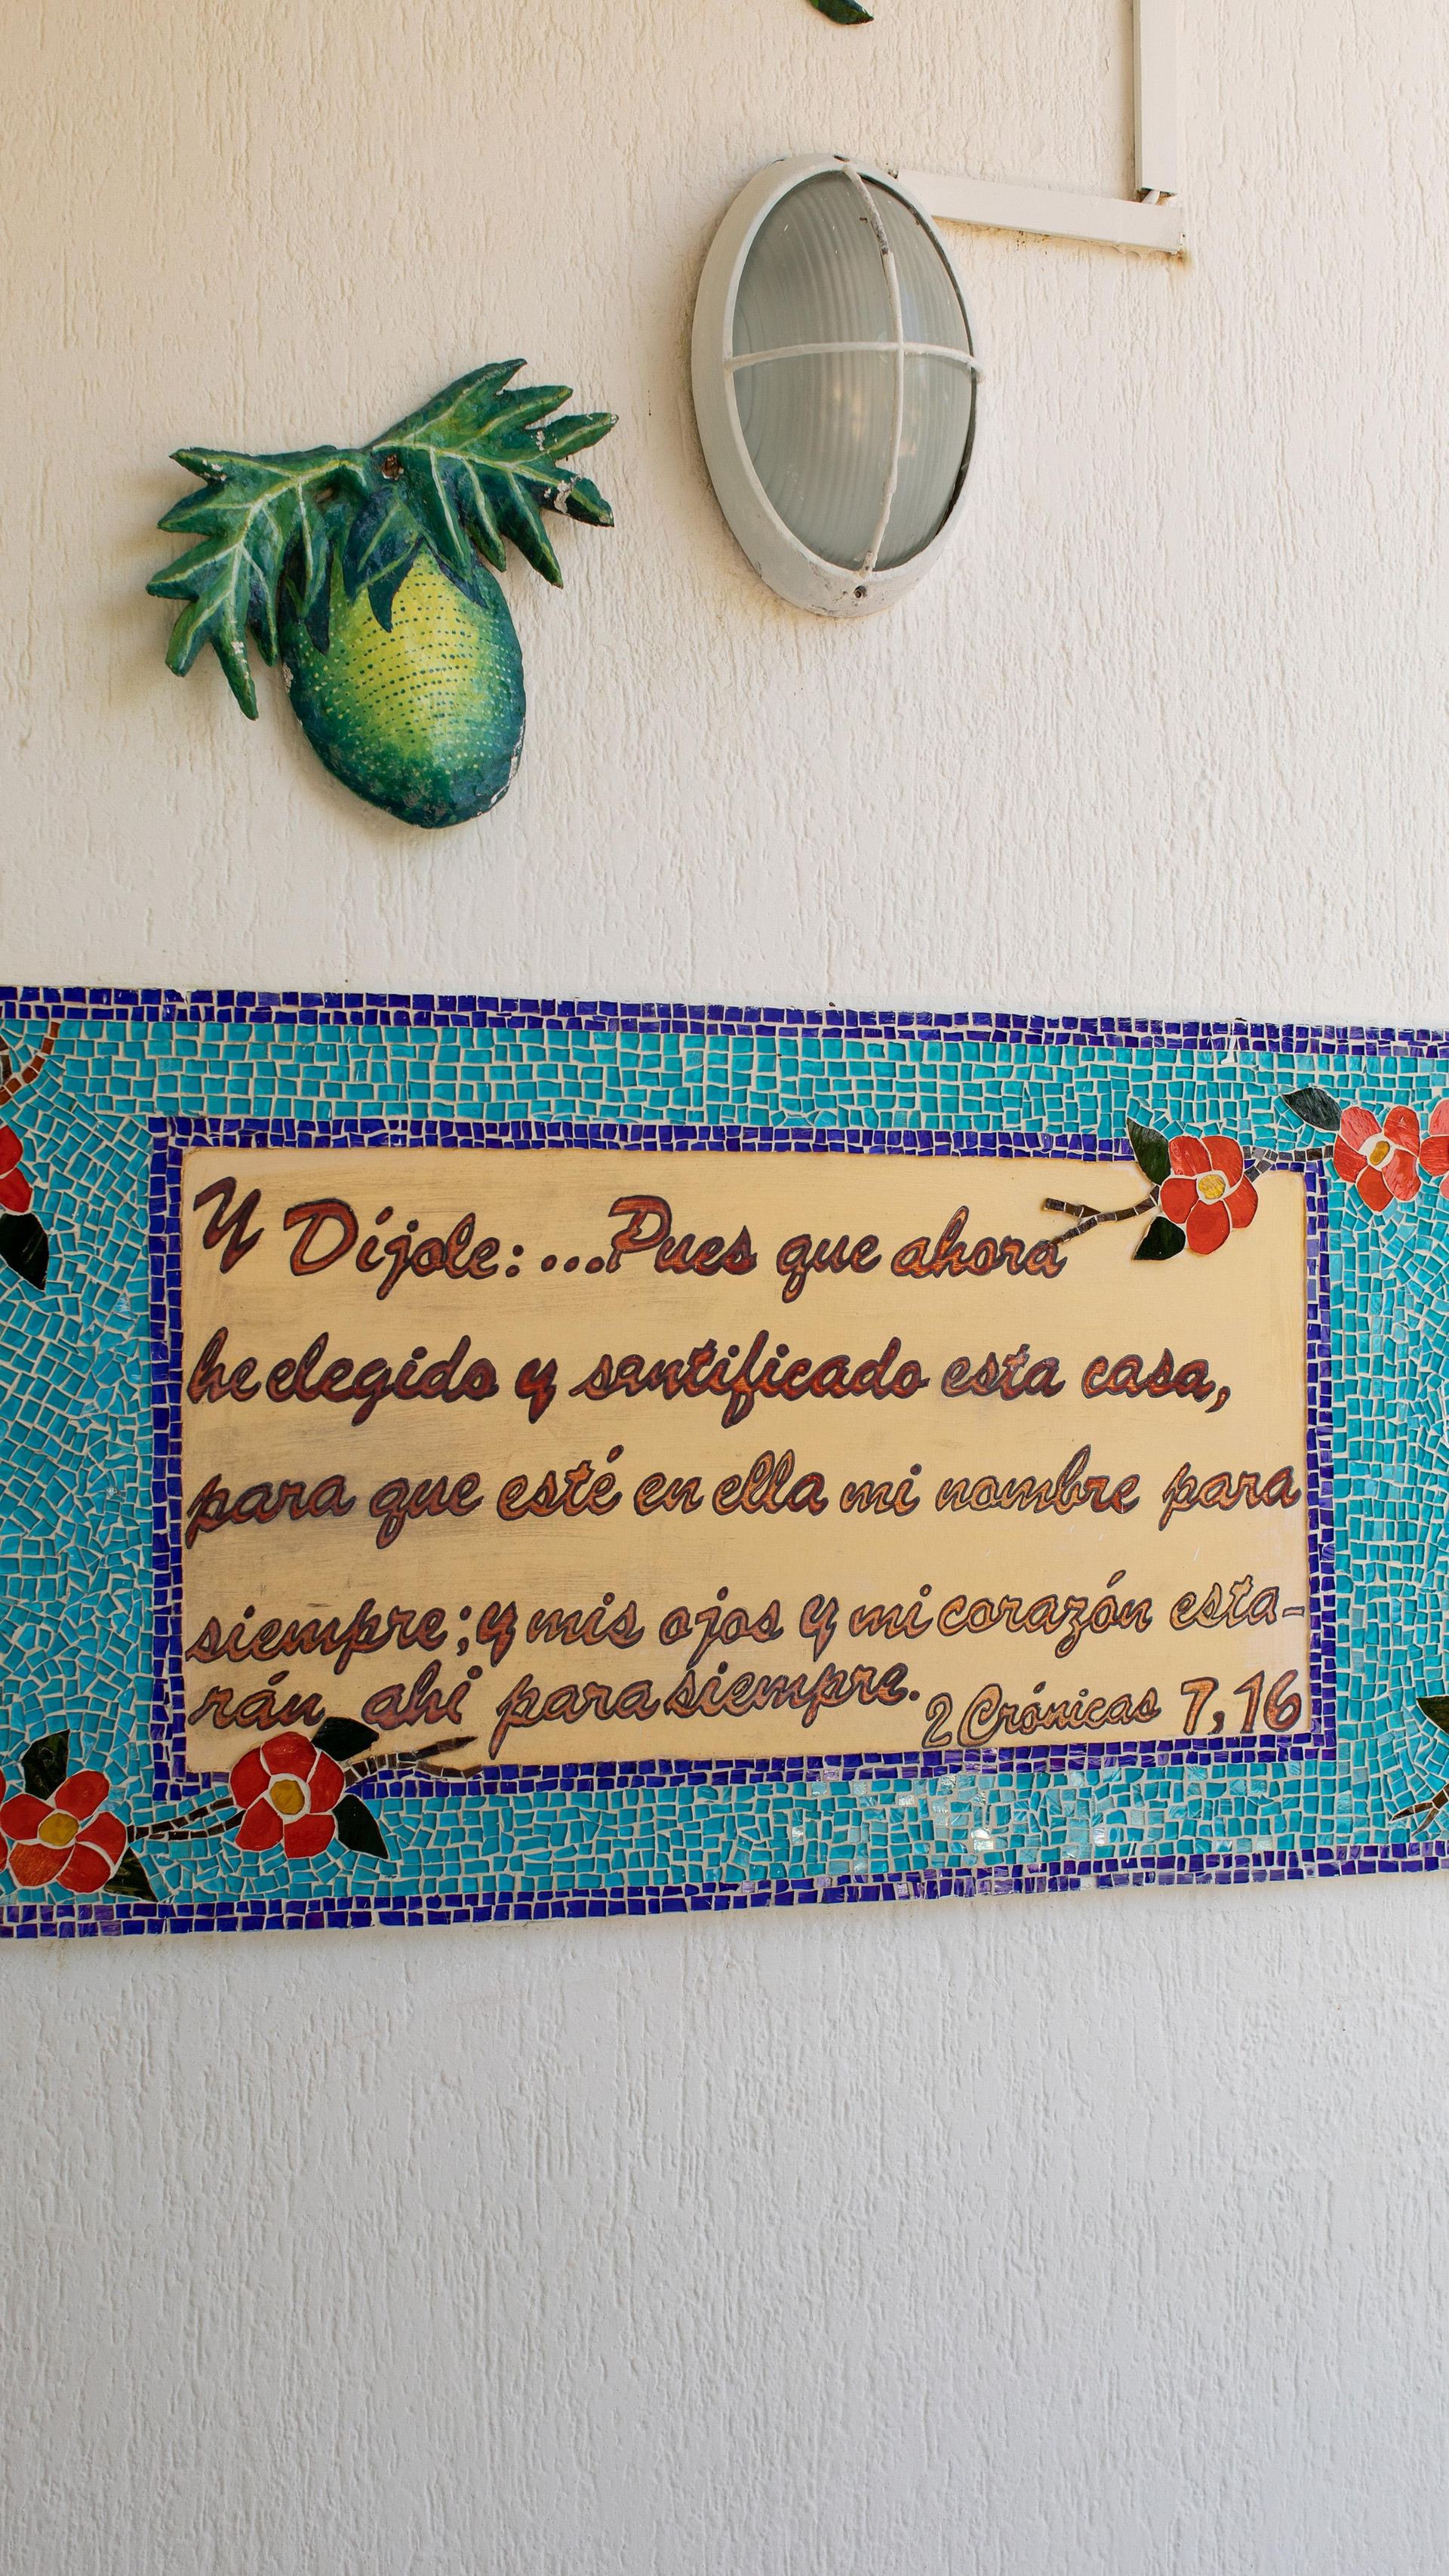 Y Díjole: ...Pues que ahora
he elegido y santificado esta casa,
para que esté en ella mi nombre para
siempre; y mis ojos y mi corazón esta-
rán ahi para siempre.
2 Crónicas 7,16